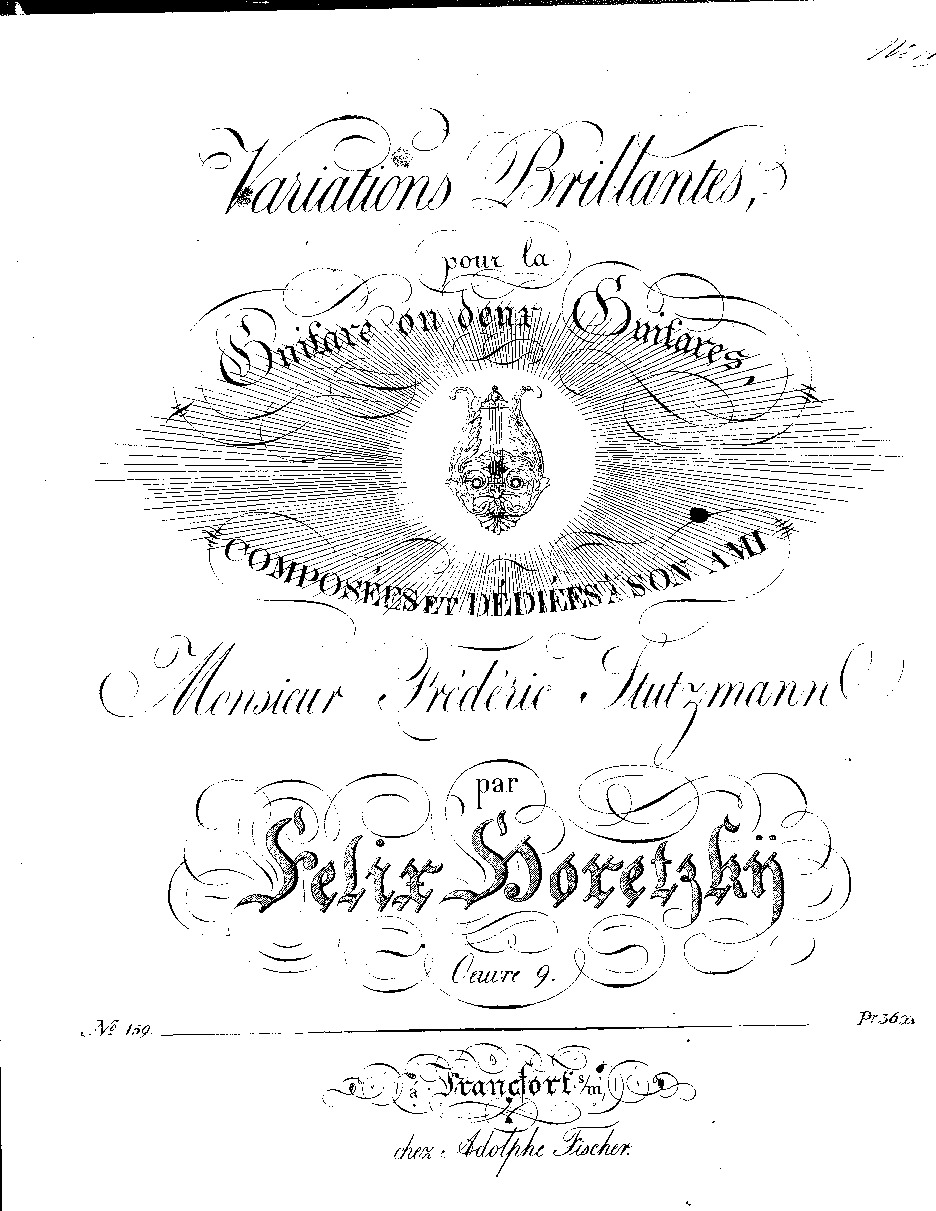 Variations Brillantes,
pour la
Guitare ou deux Guitares,
COMPOSÉES ET DÉDIÉES À SON AMI
Monsieur Frédéric Stutzmann
par
Felix Horetzkÿ
Oeuvre 9.
No 159. Pr 36
à Francfort s/m
chez Adolphe Fischer.